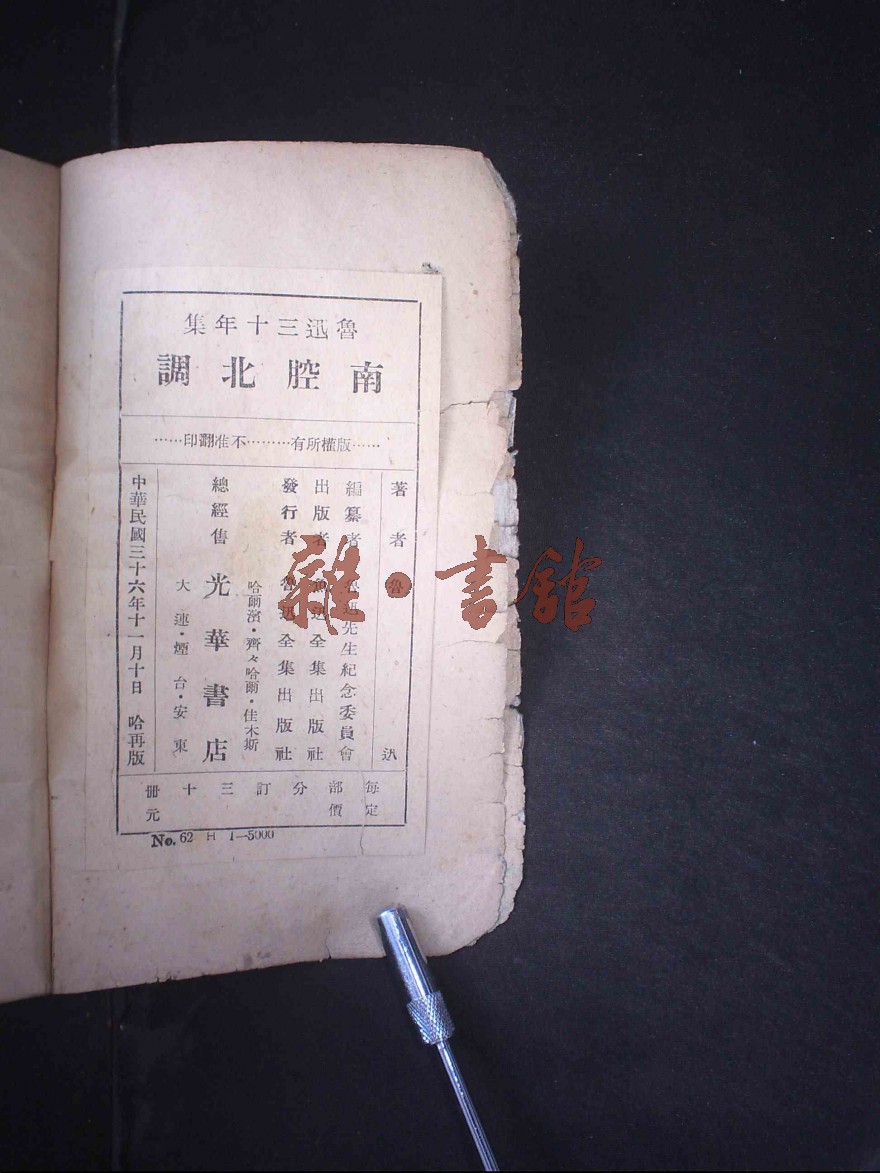 魯迅三十年集
南腔北調
……版權所有………不准翻印……
著者 魯迅
編纂者 魯迅先生紀念委員會
出版者 魯迅全集出版社
發行者 魯迅全集出版社
哈爾濱·齊々哈爾·佳木斯
總經售 光華書店
大連·煙台·安東
中華民國三十六年十一月十日 哈再版
每部分訂三十冊
定價 元
No. 62 H 1—5000
雜·書館